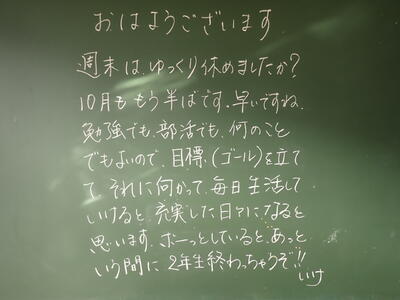 おはようございます
週末は、ゆっくり休めましたか?
10月ももう半ばです。早いですね。
勉強でも、部活でも、何のこと
でもよいので、目標(ゴール)を立て
て、それに向かって、毎日生活して
いけると、充実した日々になると
思います。ボーっとしていると、あっと
いう間に2年生終わっちゃうぞ!!
いけ